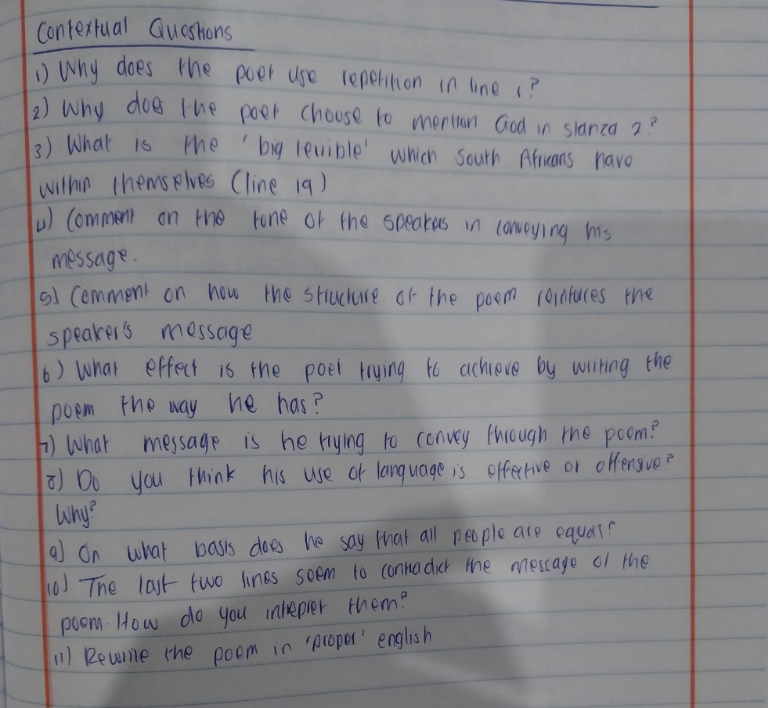 Contextual Questions
1) Why does the poet use repetition in line 1?
2) Why does the poet choose to mention God in stanza 2?
3) What is the 'big terrible' which South Africans have
within themselves (line 19)
4) Comment on the tone of the speakers in conveying his
message.
5) Comment on how the structure of the poem reinforces the
speaker's message
6) What effect is the poet trying to achieve by writing the
poem the way he has?
7) What message is he trying to convey through the poem?
8) Do you think his use of language is effective or offensive?
Why?
9) On what basis does he say that all people are equal?
10) The last two lines seem to contradict the message of the
poem. How do you interpret them?
11) Rewrite the poem in 'proper' english